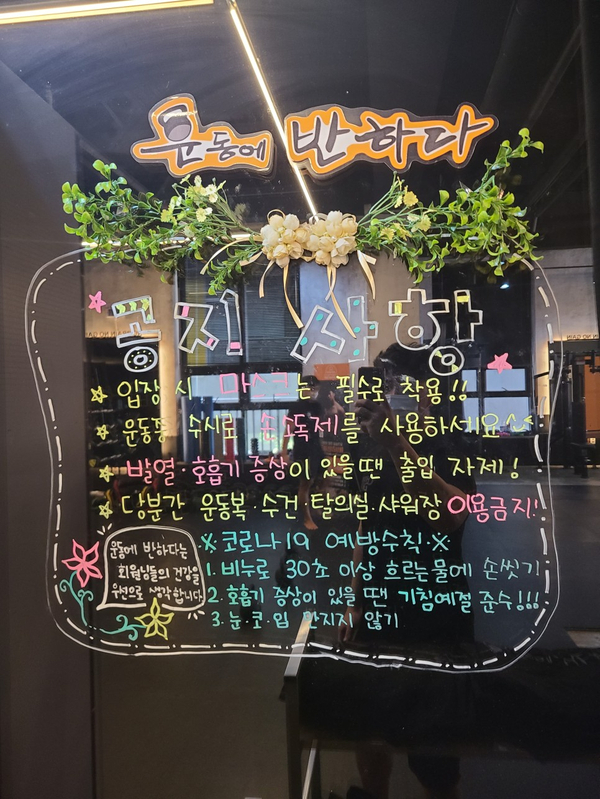 운동에 반하다
공지 사항
☆ 입장 시 마스크는 필수로 착용!!
☆ 운동중 수시로 손소독제를 사용하세요^^
☆ 발열·호흡기 증상이 있을 땐 출입 자제!
☆ 당분간 운동복·수건·탈의실·샤워장 이용금지!
※코로나19 예방수칙·※
1. 비누로 30초 이상 흐르는 물에 손씻기
2. 호흡기 증상이 있을 땐 기침예절 준수!!!
3. 눈·코·입 만지지 않기
운동에 반하다는
회원님들의 건강을
우선으로 생각합니다